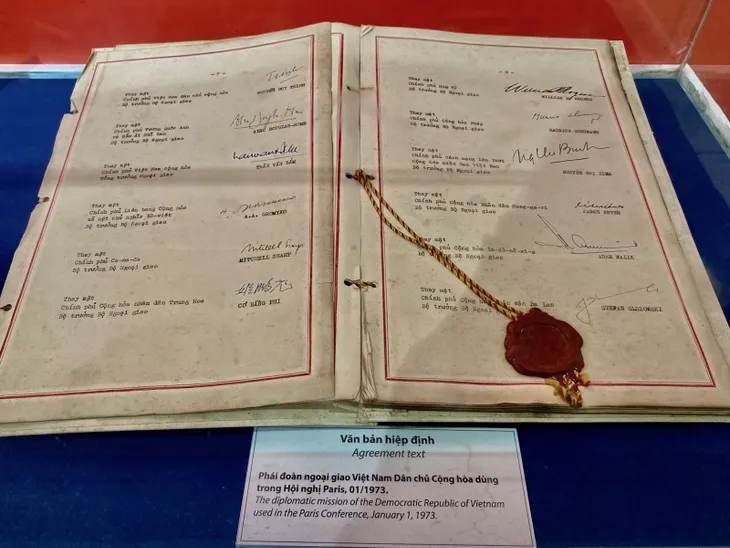 Thay mặt
Chính phủ Việt Nam dân chủ cộng hòa
Bộ trưởng Bộ Ngoại giao
NGUYỄN DUY TRINH
Thay mặt
Chính phủ Vương Quốc Anh
Bộ trưởng Bộ Ngoại giao
ALEC DOUGLAS-HOME
Thay mặt
Chính phủ Việt Nam Cộng hòa
Tổng trưởng Ngoại giao
TRẦN VĂN LẮM
Thay mặt
Chính phủ Liên bang Cộng hòa
xã hội chủ nghĩa Xô-viết
Bộ trưởng Bộ Ngoại giao
A.A. GROMIKO
Thay mặt
Chính phủ Ca-na-đa
Bộ trưởng Bộ Ngoại giao
Mitchell Sharp
MITCHELL SHARP
Thay mặt
Chính phủ Cộng hòa nhân dân Trung Hoa
Bộ trưởng Bộ Ngoại giao
姬鵬飛
CƠ BẰNG PHI
Thay mặt
Chính phủ Hoa Kỳ
Bộ trưởng Bộ Ngoại giao
WILLIAM P. ROGERS
Thay mặt
Chính phủ Cộng hòa Pháp
Bộ trưởng Bộ Ngoại giao
MAURICE SCHUMANN
Thay mặt
Chính phủ cách mạng lâm thời
Cộng hòa miền Nam Việt Nam
Bộ trưởng Bộ Ngoại giao
NGUYỄN THỊ BÌNH
Thay mặt
Chính phủ Cộng hòa Nhân dân Hung-ga-ri
Bộ trưởng Bộ Ngoại giao
JANOS PETER
mặt
phủ Cộng hòa In-đô-nê-xi-a
Bộ Ngoại giao
ADAM MALIK
Thay mặt
Chính phủ Cộng hòa dân Ba lan
Bộ trưởng Bộ Ngoại giao
STEFAN OLSZOWSKI
Văn bản hiệp định
Agreement text
Phái đoàn ngoại giao Việt Nam Dân chủ Cộng hòa dùng
trong Hội nghị Paris, 01/1973.
The diplomatic mission of the Democratic Republic of Vietnam
used in the Paris Conference, January 1, 1973.